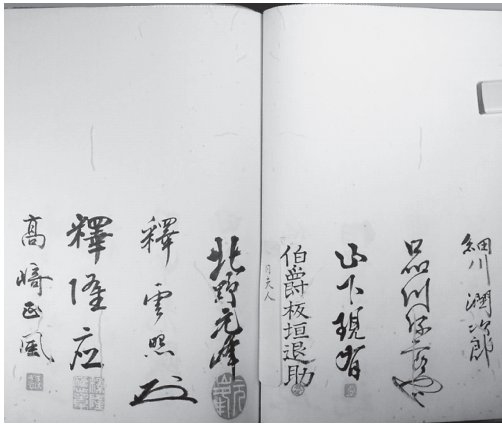 細川潤次郎
品川弥二郎
山下現有
伯爵板垣退助
同夫人
北野元峰
釋雲照
釋隆応
高崎正風